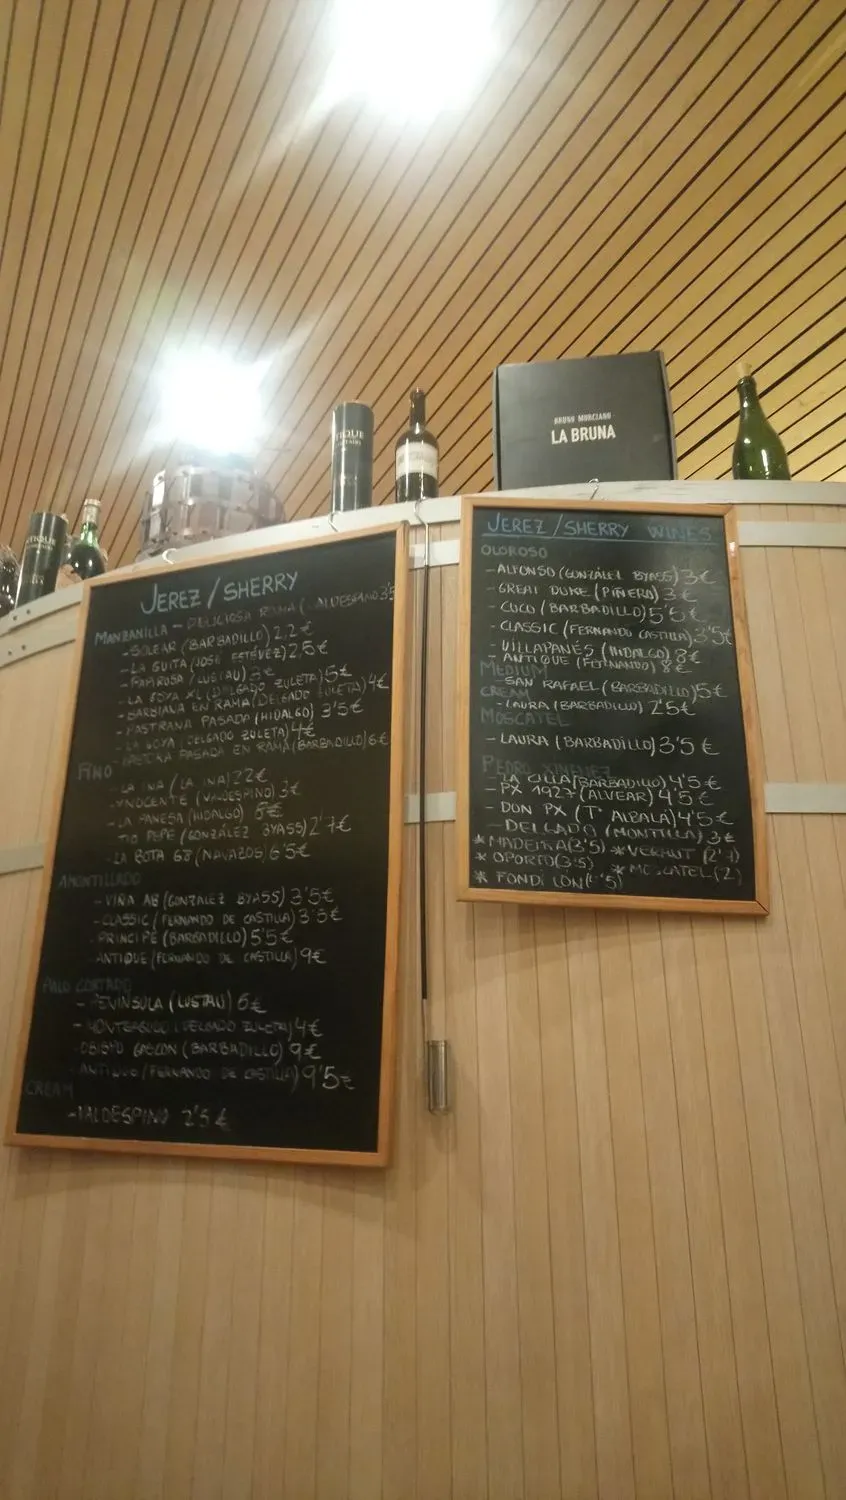 BRUNO MURCIANO
LA BRUNA
TIQUE
TIQUE
JEREZ / SHERRY
MANZANILLA - DELICIOSA RAMA (VALDESPINO) 3'5
- SOLEAR (BARBADILLO) 2,2€
- LA GUITA (JOSÉ ESTÉVEZ) 2,5€
(LUSTAU) 3€
- LA GOYA XL (DELGADO ZULETA) 5€
- BARBIANA EN RAMA (DELGADO ZULETA) 4€
- PASTRANA PASADA (HIDALGO) 3'5€
- LA GOYA (DELGADO ZULETA) 4€
PASADA EN RAMA (BARBADILLO) 6€
FINO
- LA INA (LA INA) 2'2€
- YNOCENTE (VALDESPINO) 3€
- LA PANESA (HIDALGO) 6€
- TIO PEPE (GONZÁLEZ BYASS) 2'7€
- LA BOTA 68 (NAVAZOS) 6'5€
AMONTILLADO
- VIÑA AB (GONZALEZ BYASS) 3'5€
- CLASSIC (FERNANDO DE CASTILLA) 3'5€
- PRINCIPE (BARBADILLO) 5'5€
- ANTIQUE (FERNANDO DE CASTILLA) 9€
PALO CORTADO
- PENINSULA (LUSTAU) 6€
- MONTEAGUDO (DELGADO ZULETA) 4€
- OBISPO GASCON (BARBADILLO) 9€
- ANTIQUE (FERNANDO DE CASTILLA) 9'5€
CREAM
- VALDESPINO 2'5€
JEREZ / SHERRY WINES
OLOROSO
- ALFONSO (GONZÁLEZ BYASS) 3€
- GREAT DUKE (PIÑERO) 3€
- CUCO (BARBADILLO) 5'5€
- CLASSIC (FERNANDO CASTILLA) 3'5€
- VILLAPANÉS (HIDALGO) 8€
- ANTIQUE (FERNANDO) 8€
MEDIUM
- SAN RAFAEL (BARBADILLO) 5€
CREAM
- LAURA (BARBADILLO) 2'5€
MOSCATEL
- LAURA (BARBADILLO) 3'5€
PEDRO XIMENEZ
- LA CILLA (BARBADILLO) 4'5€
- PX 1927 (ALVEAR) 4'5€
- DON PX (Tº ALBALA) 4'5€
- DELGADO (MONTILLA) 3€
* MADEIRA (3'5) * VERMUT (2'7)
* OPORTO (3'5) * MOSCATEL (2)
* FONDILLON